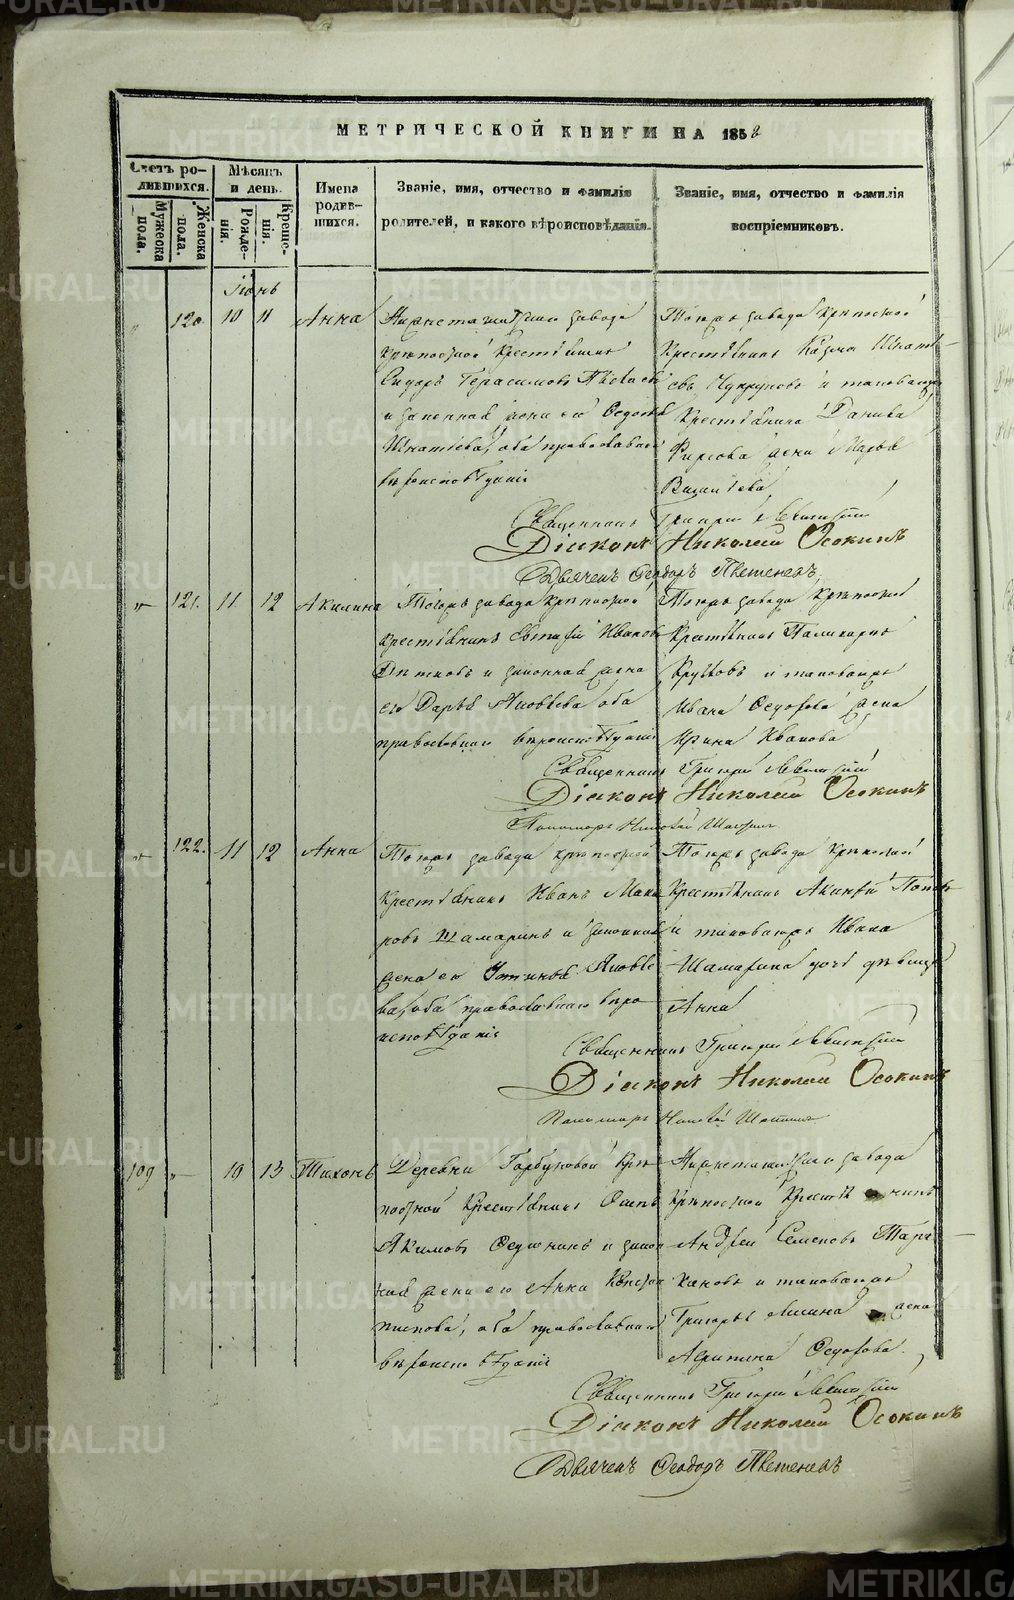 МЕТРИЧЕСКОЙ КНИГИ НА 1852
Счетъ ро-
дившихся.
Мужеска
пола.
Женска
пола.
Мѣсяцъ
и день.
Рожде-
нія.
Креще-
нія.
Имена
родив-
шихся.
Званіе, имя, отчество и фамилія
родителей, и какого вѣроисповѣданія.
Званіе, имя, отчество и фамилія
воспріемниковъ.
Іюнь
120 10 11 Анна
Нижнетагильскаго завода
крѣпостной крестьянинъ
Сидоръ Герасимовъ
и законная жена его Федосья
Игнатьева, оба православнаго
вѣроисповѣданія
Тогожъ завода крѣпостной
Крестьянинъ Козма Игнать-
евъ и таковагожъ
Крестьянина Данила
Фирсова жена Марья
Священникъ Григорій
Діаконъ Николай Осокинъ
Дьячекъ Феодоръ
121. 11 12 Акилина
Тогожъ завода крѣпостной
крестьянинъ Евтифій Ивановъ
и законная жена
его Дарья Яковлева оба
православнаго вѣроисповѣданія
Тогожъ завода крѣпостной
Крестьянинъ Поликарпъ
Кругловъ и таковагожъ
Ивана Федорова жена
Ирина Иванова
Священникъ Григорій
Діаконъ Николай Осокинъ
Пономарь Николай
122. 11 12 Анна
Тогожъ завода крѣпостной
Крестьянинъ Иванъ Мака
ровъ Шамаринъ и законная
жена его Устинья Яковле
ва, оба православнаго вѣро
исповѣданія
Тогожъ завода крѣпостной
Крестьянинъ Акинфій
и таковагожъ Ивана
Шамарина дочь дѣвица
Анна
Священникъ Григорій
Діаконъ Николай Осокинъ
Пономарь Николай
109 10 13 Тихонъ
Деревни Горбуновой крѣ
постной Крестьянинъ Осипъ
Акимовъ и закон
ная жена его Анна Конста
нтинова, оба православнаго
вѣроисповѣданія
Нижнетагильскаго завода
Крѣпостной Крестьянинъ
Андрей Семеновъ Тара
кановъ и таковагожъ
Григорья жена
Агрипена Федорова.
Священникъ Григорій
Діаконъ Николай Осокинъ
Дьячекъ Феодоръ
METRIKI.GASO-URAL.RU